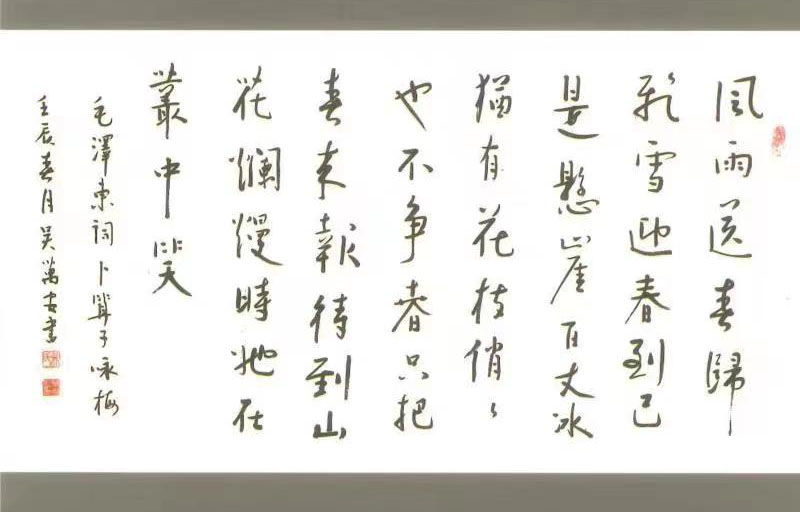 風雨送春歸
飛雪迎春到已
是懸崖百丈冰
猶有花枝俏〻
也不争春只把
春来報待到山
花爛熳時她在
叢中笑
毛澤東詞卜算子咏梅
壬辰春月吴萬書